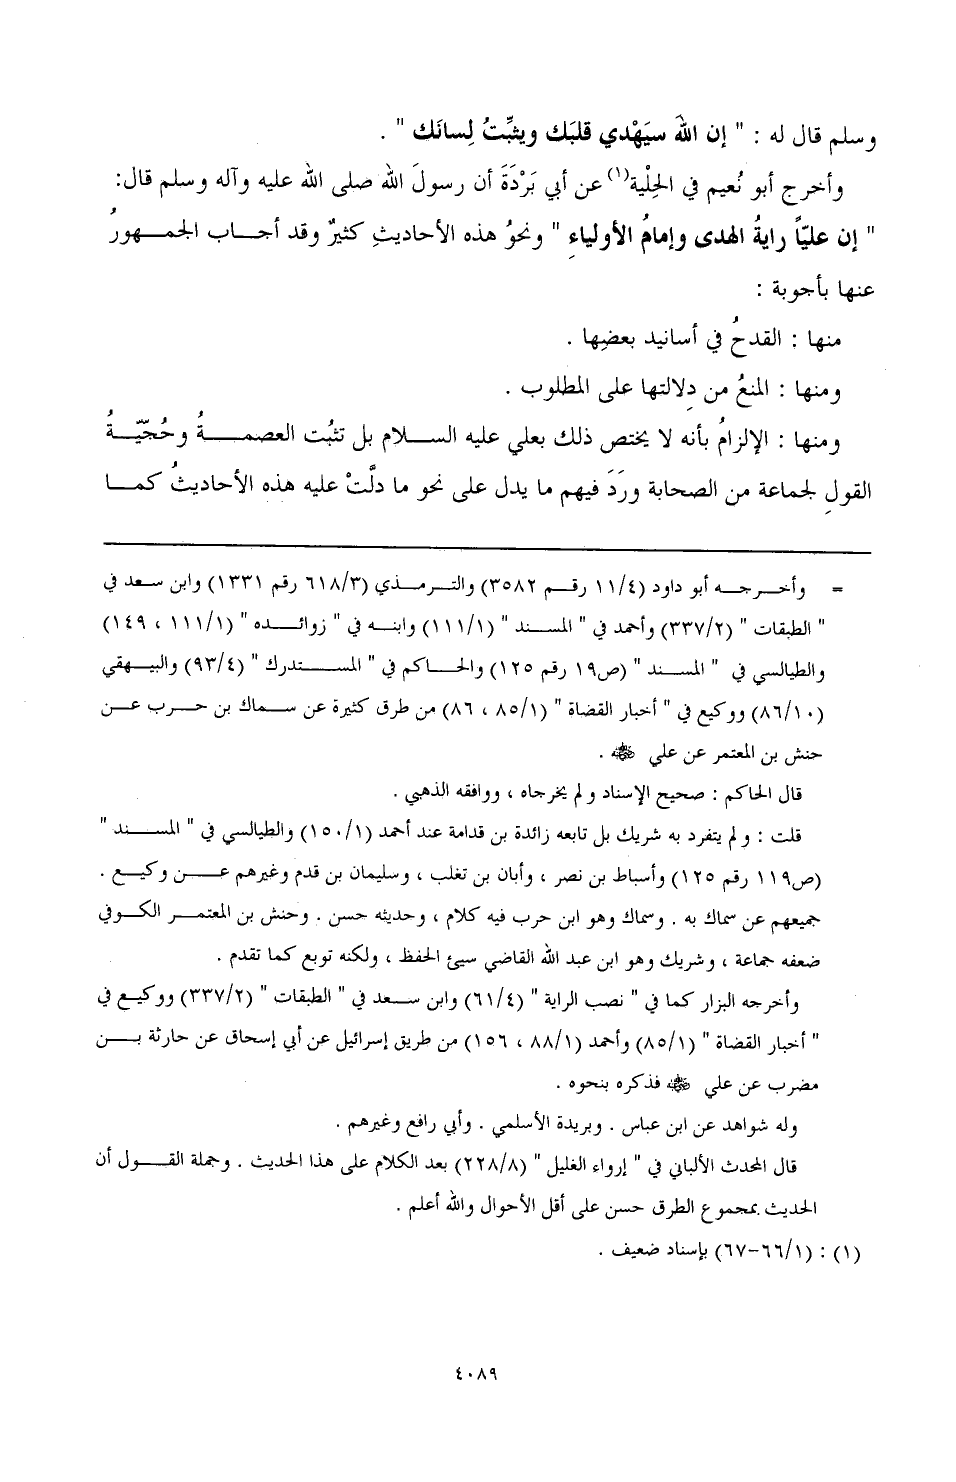 وسلم قال له : " إن اللهَ سيَهْدي قلبَك ويثبِّتُ لِسانَك " .
وأخرج أبو نُعيم في الحِلْية(١) عن أبي بَرْدَةَ أن رسولَ الله صلى الله عليه وآله وسلم قال:
" إن عليًّا رايةُ الهدى وإمامُ الأولياءِ " ونحوُ هذه الأحاديثِ كثيرٌ وقد أجاب الجمهورُ
عنها بأجوبة :
منها : القدحُ في أسانيد بعضِها .
ومنها : المنعُ من دِلالتها على المطلوب .
ومنها : الإلزامُ بأنه لا يختص ذلك بعلي عليه السلام بل تثبُت العصمةُ وحُجّيّةُ
القولِ لجماعة من الصحابة ورَدَ فيهم ما يدل على نحو ما دلَّتْ عليه هذه الأحاديثُ كما
= وأخرجه أبو داود (٤/١١ رقم ٣٥٨٢) والترمذي (٣/٦١٨ رقم ١٣٣١) وابن سعد في
" الطبقات " (٢/٣٣٧) وأحمد في " المسند " (١/١١١) وابنه في " زوائده " (١/١١١ ، ١٤٩)
والطيالسي في " المسند " (ص١٩ رقم ١٢٥) والحاكم في " المستدرك " (٤/٩٣) والبيهقي
(١٠/٨٦) ووكيع في " أخبار القضاة " (١/٨٥ ، ٨٦) من طرق كثيرة عن سماك بن حرب عن
حنش بن المعتمر عن علي ﷺ .
قال الحاكم : صحيح الإسناد ولم يخرجاه ، ووافقه الذهبي .
قلت : ولم يتفرد به شريك بل تابعه زائدة بن قدامة عند أحمد (١/١٥٠) والطيالسي في " المسند "
(ص١١٩ رقم ١٢٥) وأسباط بن نصر ، وأبان بن تغلب ، وسليمان بن قدم وغيرهم عن وكيع .
جميعهم عن سماك به . وسماك وهو ابن حرب فيه كلام ، وحديثه حسن . وحنش بن المعتمر الكوفي
ضعفه جماعة ، وشريك وهو ابن عبد الله القاضي سيئ الحفظ ، ولكنه توبع كما تقدم .
وأخرجه البزار كما في " نصب الراية " (٤/٦١) وابن سعد في " الطبقات " (٢/٣٣٧) ووكيع في
" أخبار القضاة " (١/٨٥) وأحمد (١/٨٨ ، ١٥٦) من طريق إسرائيل عن أبي إسحاق عن حارثة بن
مضرب عن علي ﷺ فذكره بنحوه .
وله شواهد عن ابن عباس . وبريدة الأسلمي . وأبي رافع وغيرهم .
قال المحدث الألباني في " إرواء الغليل " (٨/٢٢٨) بعد الكلام على هذا الحديث . وجملة القول أن
الحديث بمجموع الطرق حسن على أقل الأحوال والله أعلم .
(١) : (١/٦٦-٦٧) بإسناد ضعيف .
٤٠٨٩